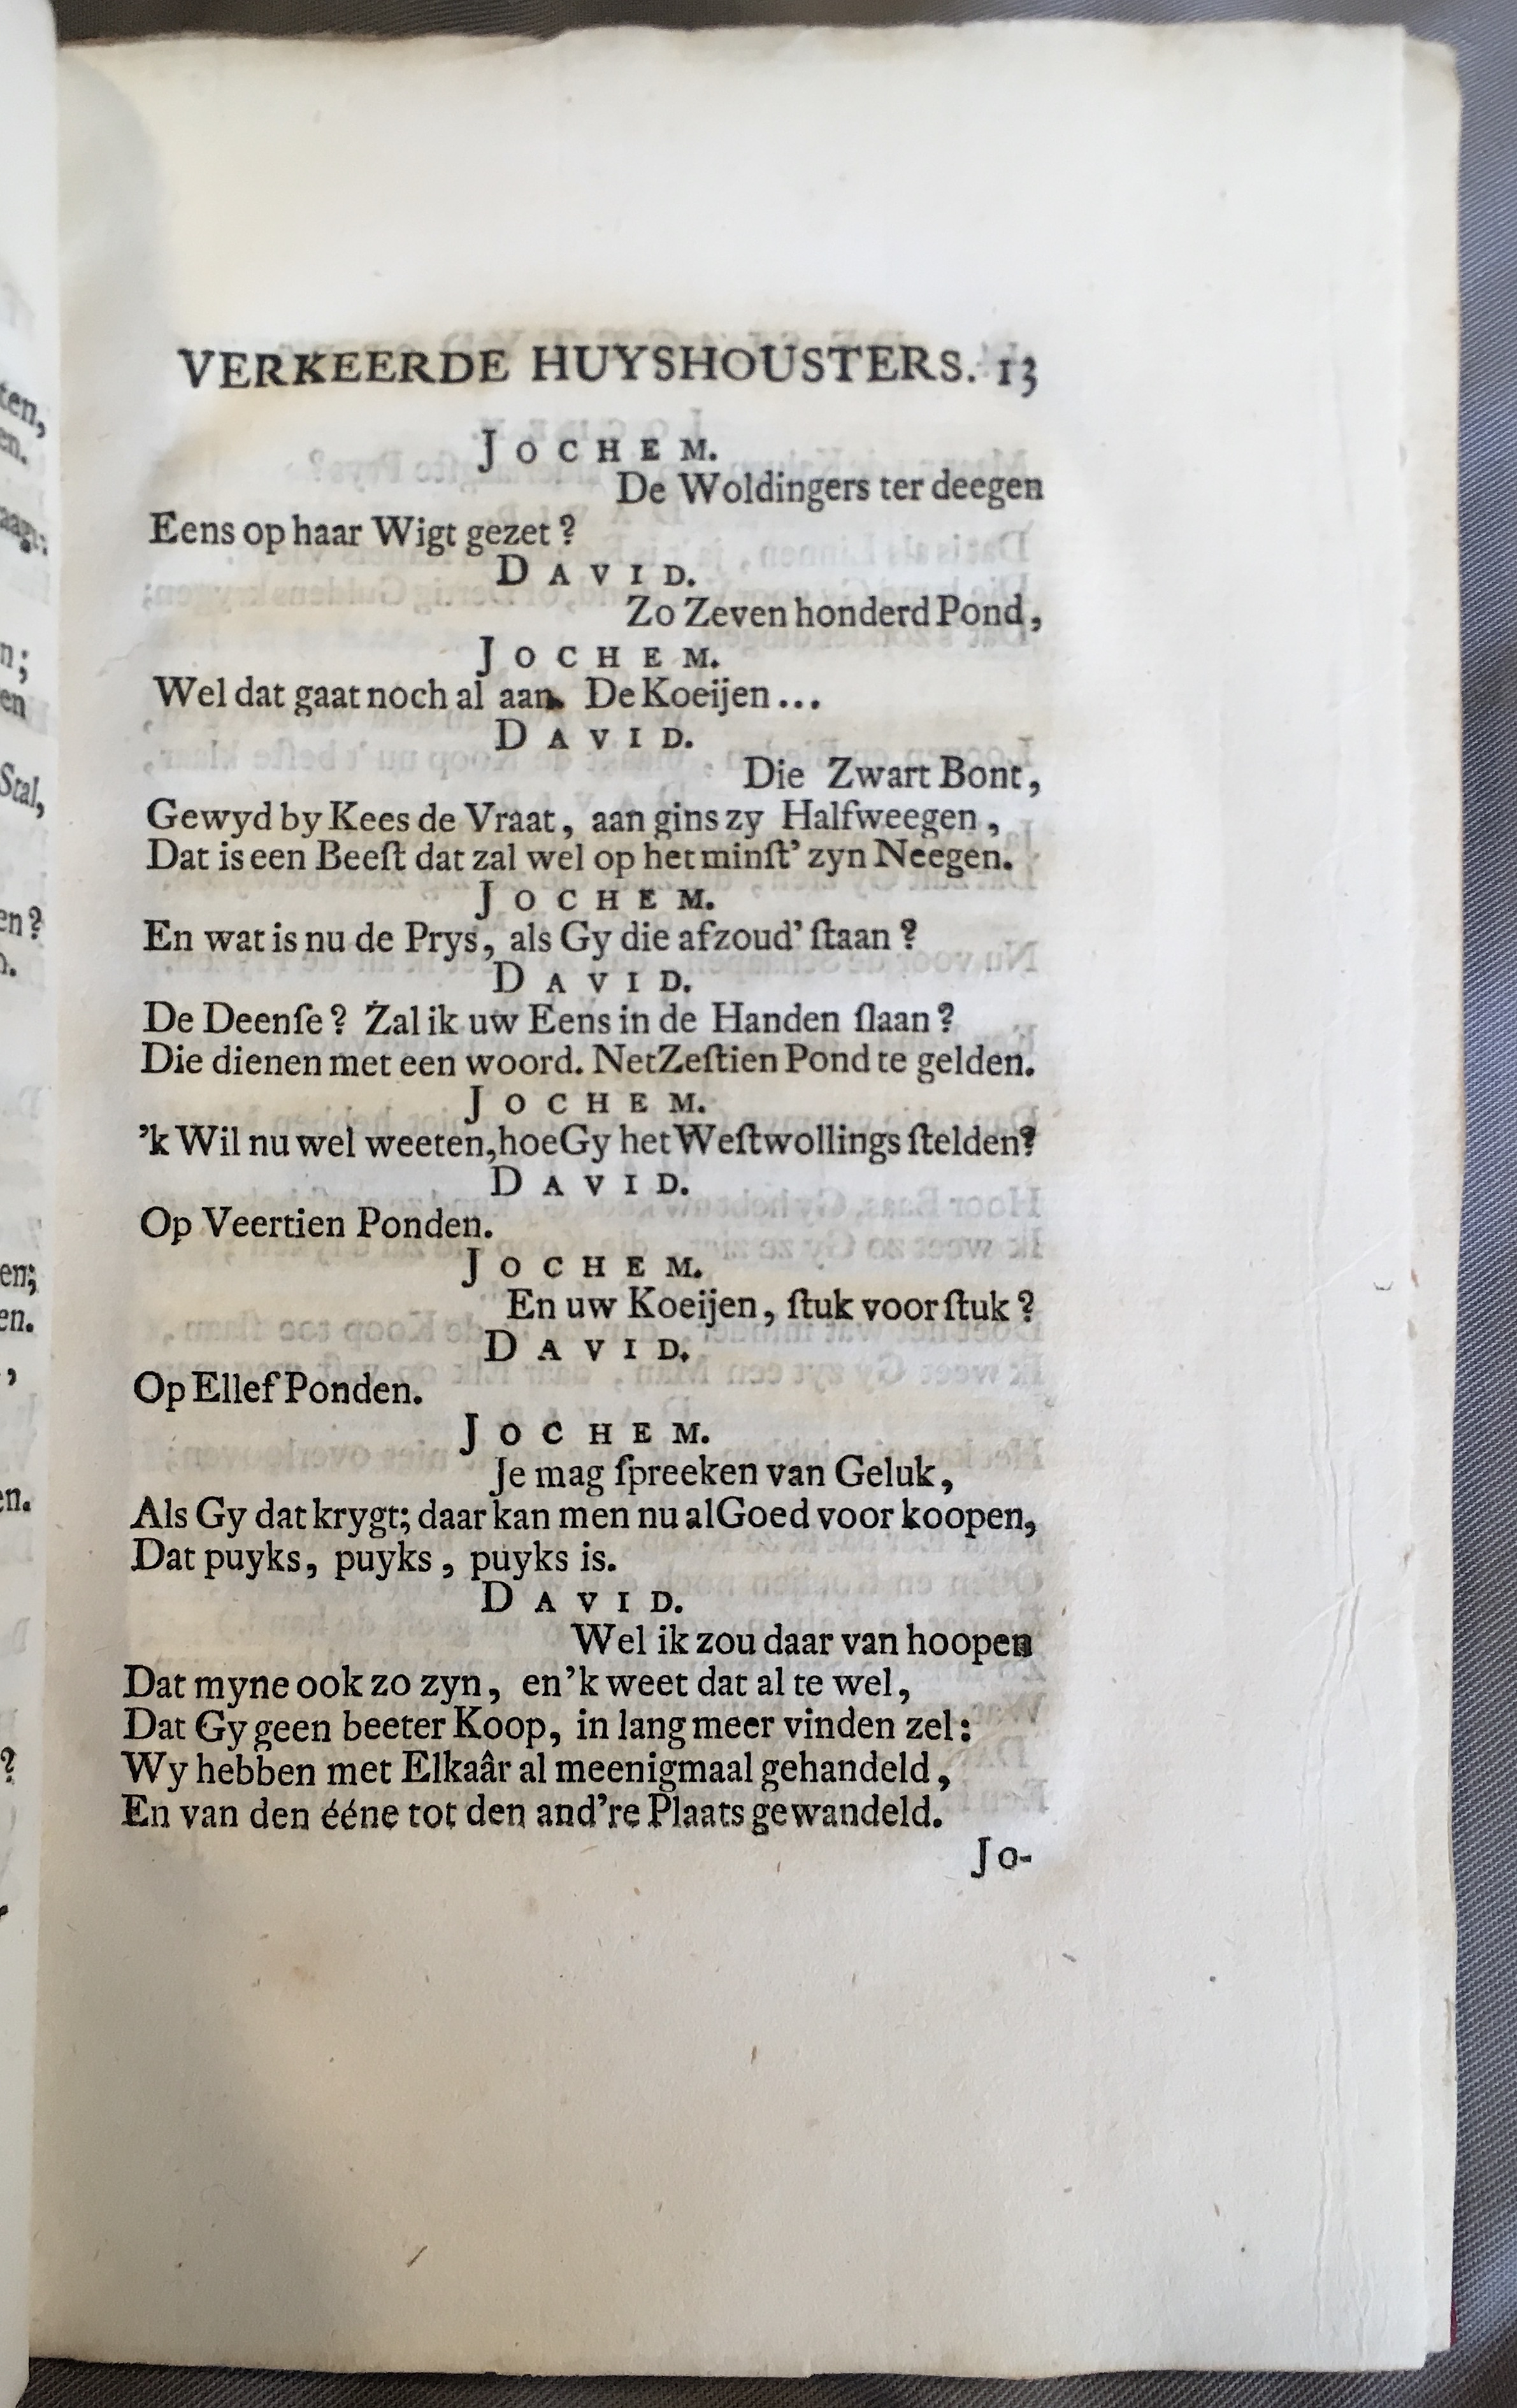 VERKEERDE HUYSHOUSTERS. 13
JOCHEM.
De Woldingers ter deegen
Eens op haar Wigt gezet?
DAVID.
Zo Zeven honderd Pond,
JOCHEM.
Wel dat gaat noch al aan. De Koeijen...
DAVID.
Die Zwart Bont,
Gewyd by Kees de Vraat, aan gins zy Halfweegen,
Dat is een Beeſt dat zal wel op het minſt' zyn Neegen.
JOCHEM.
En wat is nu de Prys, als Gy die afzoud' ſtaan?
DAVID.
De Deenſe? Zal ik uw Eens in de Handen ſlaan?
Die dienen met een woord. Net Zeſtien Pond te gelden.
JOCHEM.
'k Wil nu wel weeten, hoe Gy het Weſtwollings ſtelden?
DAVID.
Op Veertien Ponden.
JOCHEM.
En uw Koeijen, ſtuk voor ſtuk?
DAVID.
Op Ellef Ponden.
JOCHEM.
Je mag ſpreeken van Geluk,
Als Gy dat krygt; daar kan men nu al Goed voor koopen,
Dat puyks, puyks, puyks is.
DAVID.
Wel ik zou daar van hoopen
Dat myne ook zo zyn, en 'k weet dat al te wel,
Dat Gy geen beeter Koop, in lang meer vinden zel:
Wy hebben met Elkaâr al meenigmaal gehandeld,
En van den ééne tot den and're Plaats gewandeld.
Jo-